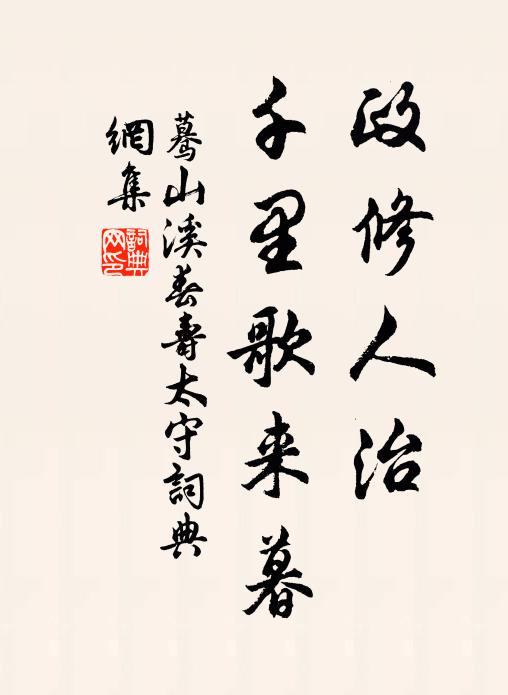 政修人治
千里歌来暮
蓦山溪春壽太守詞典
網集
詞典
网印